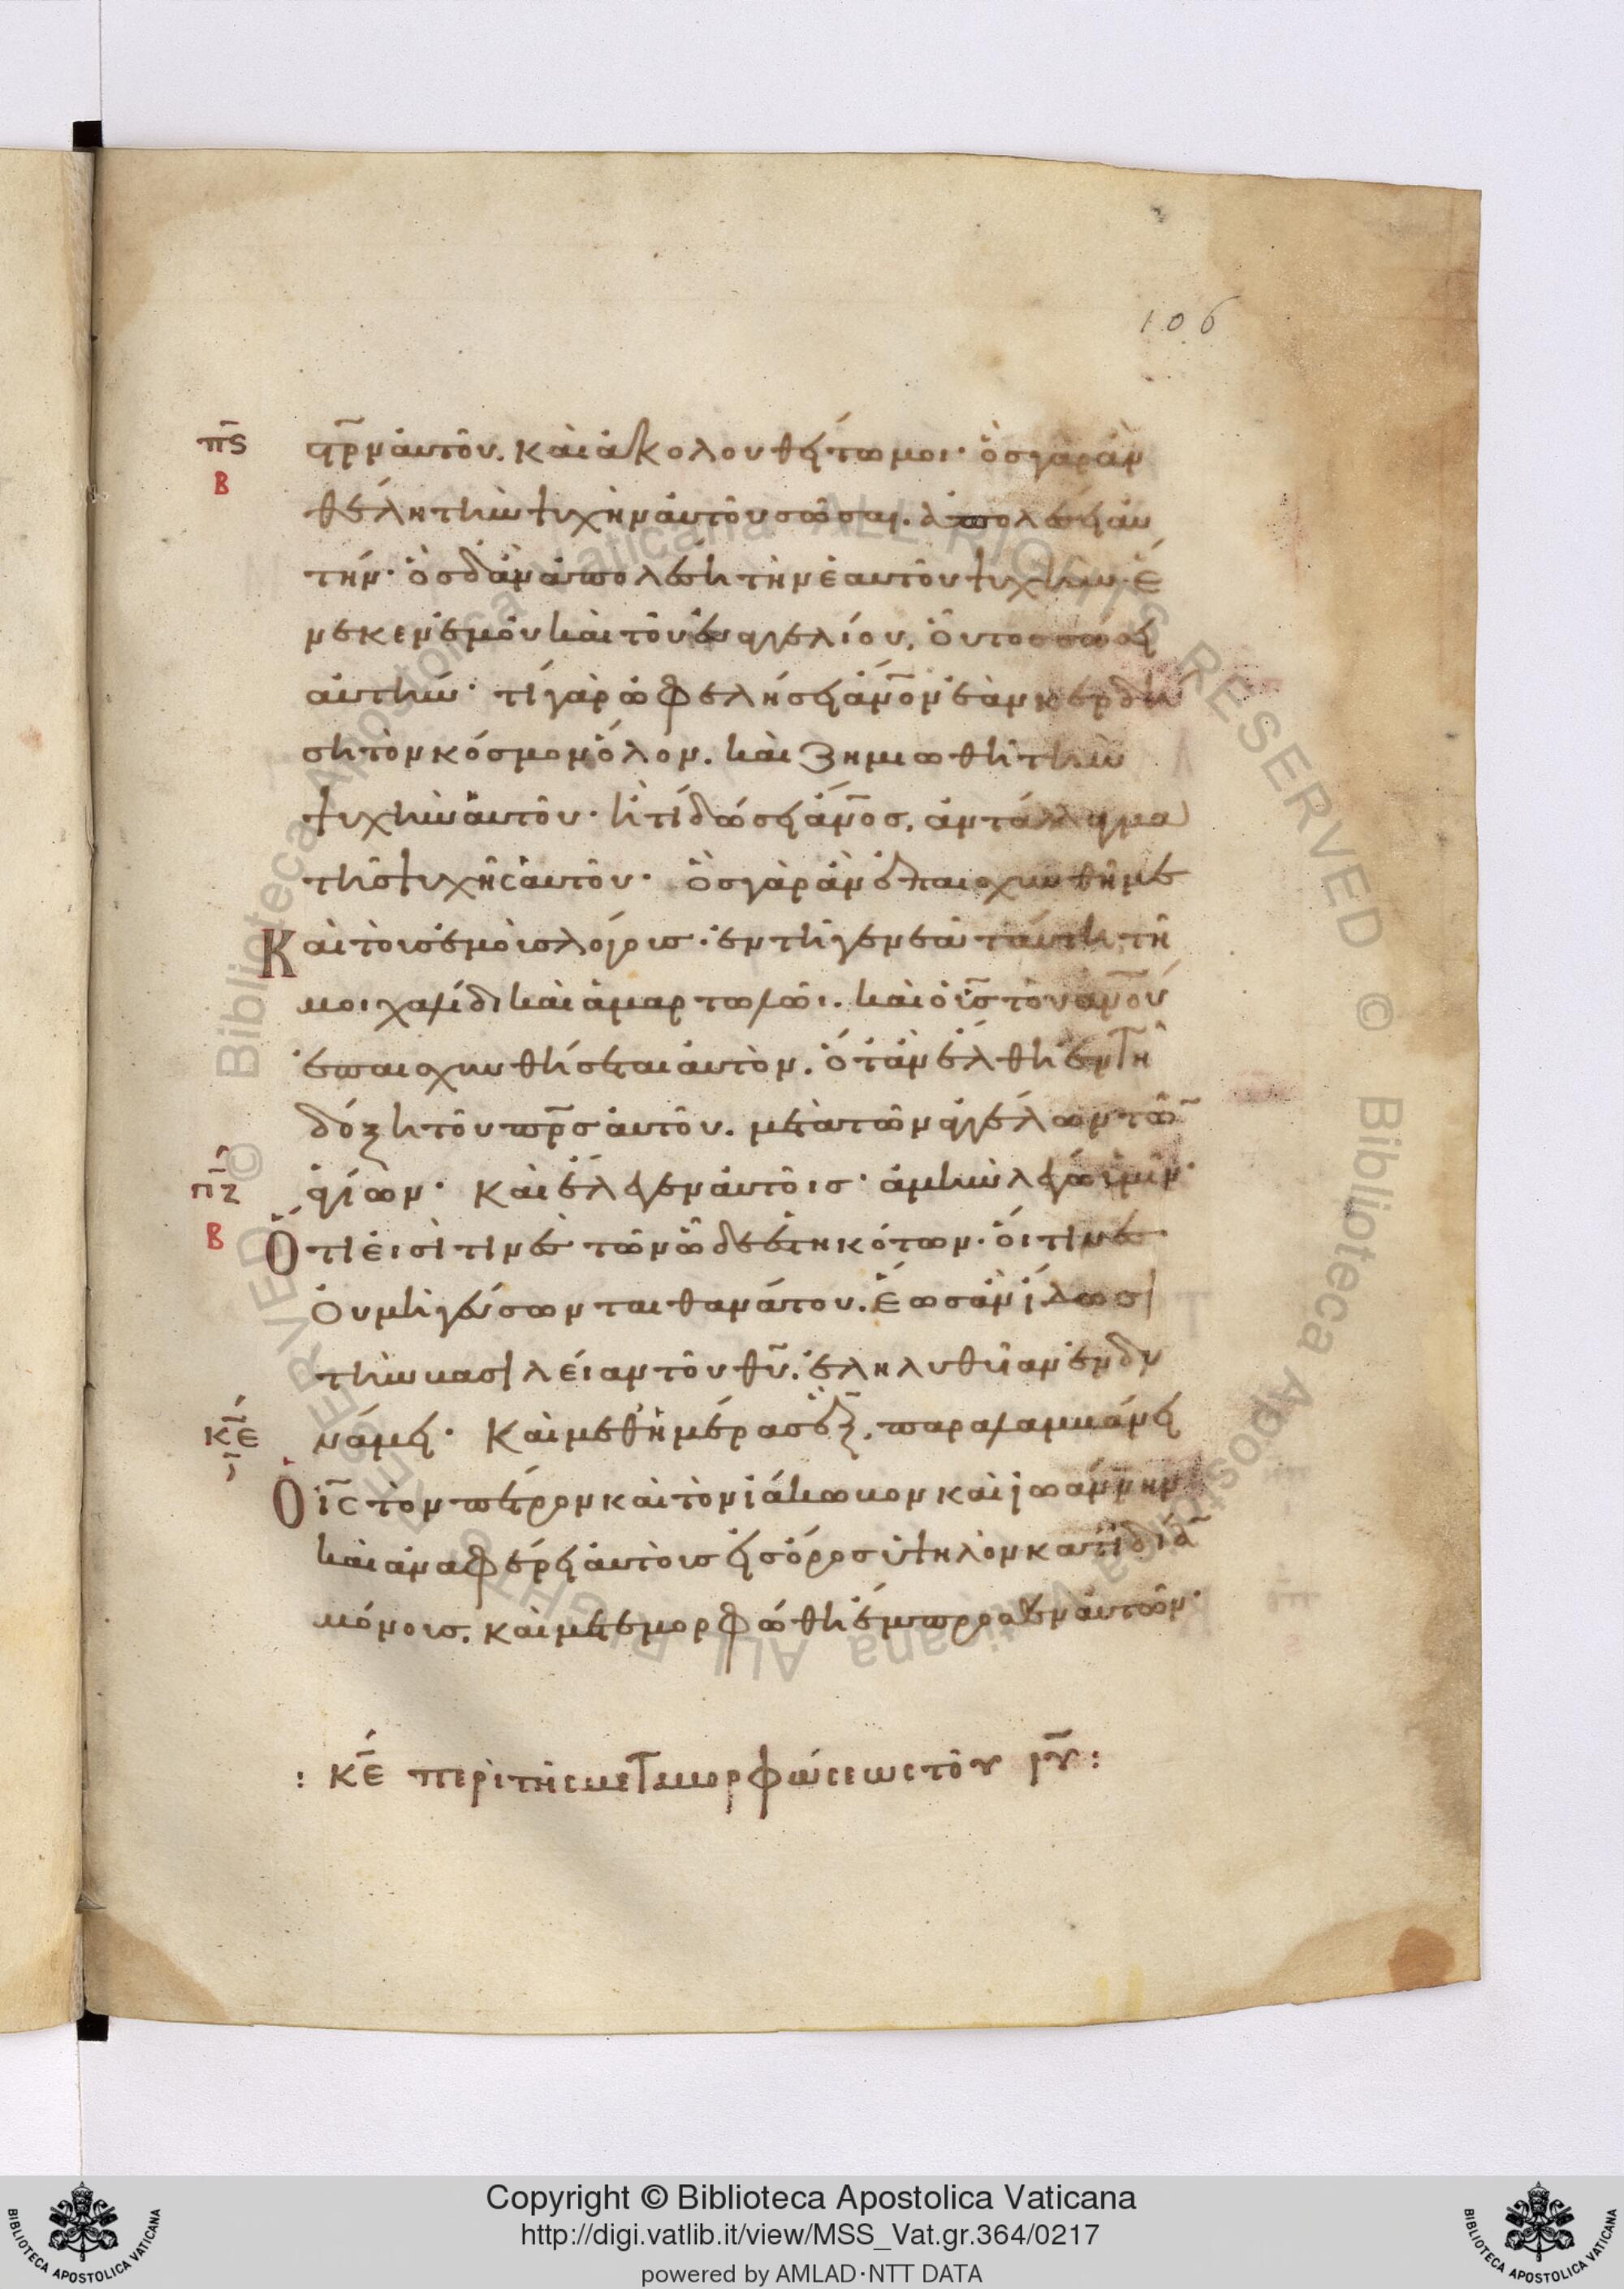 106
π̅ς̅
Β
στ̅ρ̅ν αὐτοῦ. καὶ ἀκολουθείτω μοι· ὃς γὰρ ἂν
θέλη τὴν ψυχὴν αὐτοῦ σῶσαι. ἀπολέσει αὐ
τήν· ὃς δ' ἂν ἀπολέση τὴν ἑαυτοῦ ψυχὴν ἕ
νεκεν ἐμοῦ καὶ τοῦ εὐαγγελίου, οὗτος σώσει
αὐτήν· τί γὰρ ὠφελήσει ἄν̅ο̅ν ἐὰν κερδή
ση τὸν κόσμον ὅλον. καὶ ζημιωθῆ τὴν
ψυχὴν αὐτοῦ· ἢ τί δώσει ἄν̅ο̅ς. ἀντάλλαγμα
τῆς ψυχῆς αὐτοῦ· ὃς γὰρ ἂν ἐπαισχυνθῆ με
Καὶ τοὺς ἐμοὺς λόγους· ἐν τῆ γενεᾶ ταύτη τῆ
μοιχαλίδι καὶ ἁμαρτωλῶ. καὶ ὁ υἱ̅ς̅ τοῦ ἀν̅ο̅υ
ἐπαισχυνθήσεται αὐτὸν. ὅταν ἔλθη ἐν τῆ
δόξη τοῦ π̅ρ̅ς αὐτοῦ. μετὰ τῶν ἀγγέλων τῶ̅
π̅ζ̅
Β
ἁγίων· Καὶ ἔλεγεν αὐτοῖς· ἀμὴν λέγω ὑμῖν·
Ὅτι εἰσί τινες τῶν ὧδε ἑστηκότων. οἵτινες
οὐ μὴ γεύσωνται θανάτου. ἕως ἂν ἴδωσι
τὴν βασιλείαν τοῦ θ̅υ̅. ἐληλυθυῖαν ἐν δυ
κ̅ε̅
νάμει· Καὶ μεθ' ἡμέρας ἓξ. παραλαμβάνει
Ὁ ι̅ς̅ τὸν πέτρον καὶ τὸν ἰάκωβον καὶ ἰωάννην
καὶ ἀναφέρει αὐτοὺς εἰς ὄρος ὑψηλὸν κατ' ἰδία̅
μόνους. καὶ μετεμορφώθη ἔμπροσθεν αὐτῶν·
: κ̅ε̅ περὶ τῆς μεταμορφώσεως τοῦ ι̅υ̅ :
Copyright © Biblioteca Apostolica Vaticana
http://digi.vatlib.it/view/MSS_Vat.gr.364/0217
powered by AMLAD·NTT DATA
BIBLIOTECA APOSTOLICA VATICANA
BIBLIOTECA APOSTOLICA VATICANA